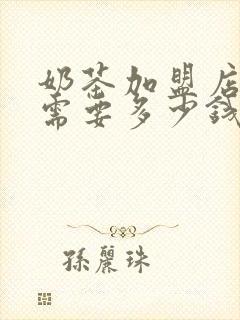 奶茶加盟店
需要多少钱
孫麗珠